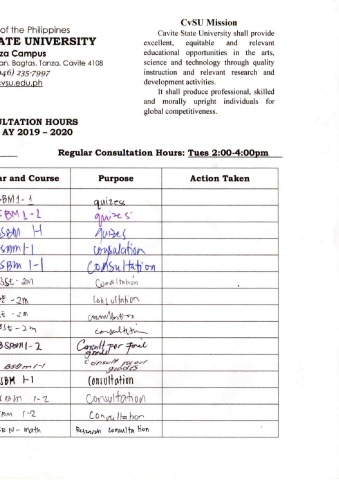 of the Philippines
ATE UNIVERSITY
za Campus
an, Bagtas, Tanza, Cavite 4108
046) 235-7997
vsu.edu.ph
CvSU Mission
Cavite State University shall provide
excellent, equitable and relevant
educational opportunities in the arts,
science and technology through quality
instruction and relevant research and
development activities.
It shall produce professional, skilled
and morally upright individuals for
global competitiveness.
ULTATION HOURS
AY 2019 – 2020
Regular Consultation Hours: Tues 2:00-4:00pm
ar and Course Purpose Action Taken
SBM 1-1 quizess
SBM 1-2 quizes
SBM 1-1 quizes
SBM 1-1 consultation
SBM 1-1 Consultation
BSE - 2M Consultation
E - 2M Consultation
E - 2M
SE - 2M Consultation
BSBM 1-2 Consult for final grades
BSBM 1-1 Consult grades
SBM 1-1 Consultation
SBM 1-2 Consultation
BM 1-2 Consultation
Math Consultation